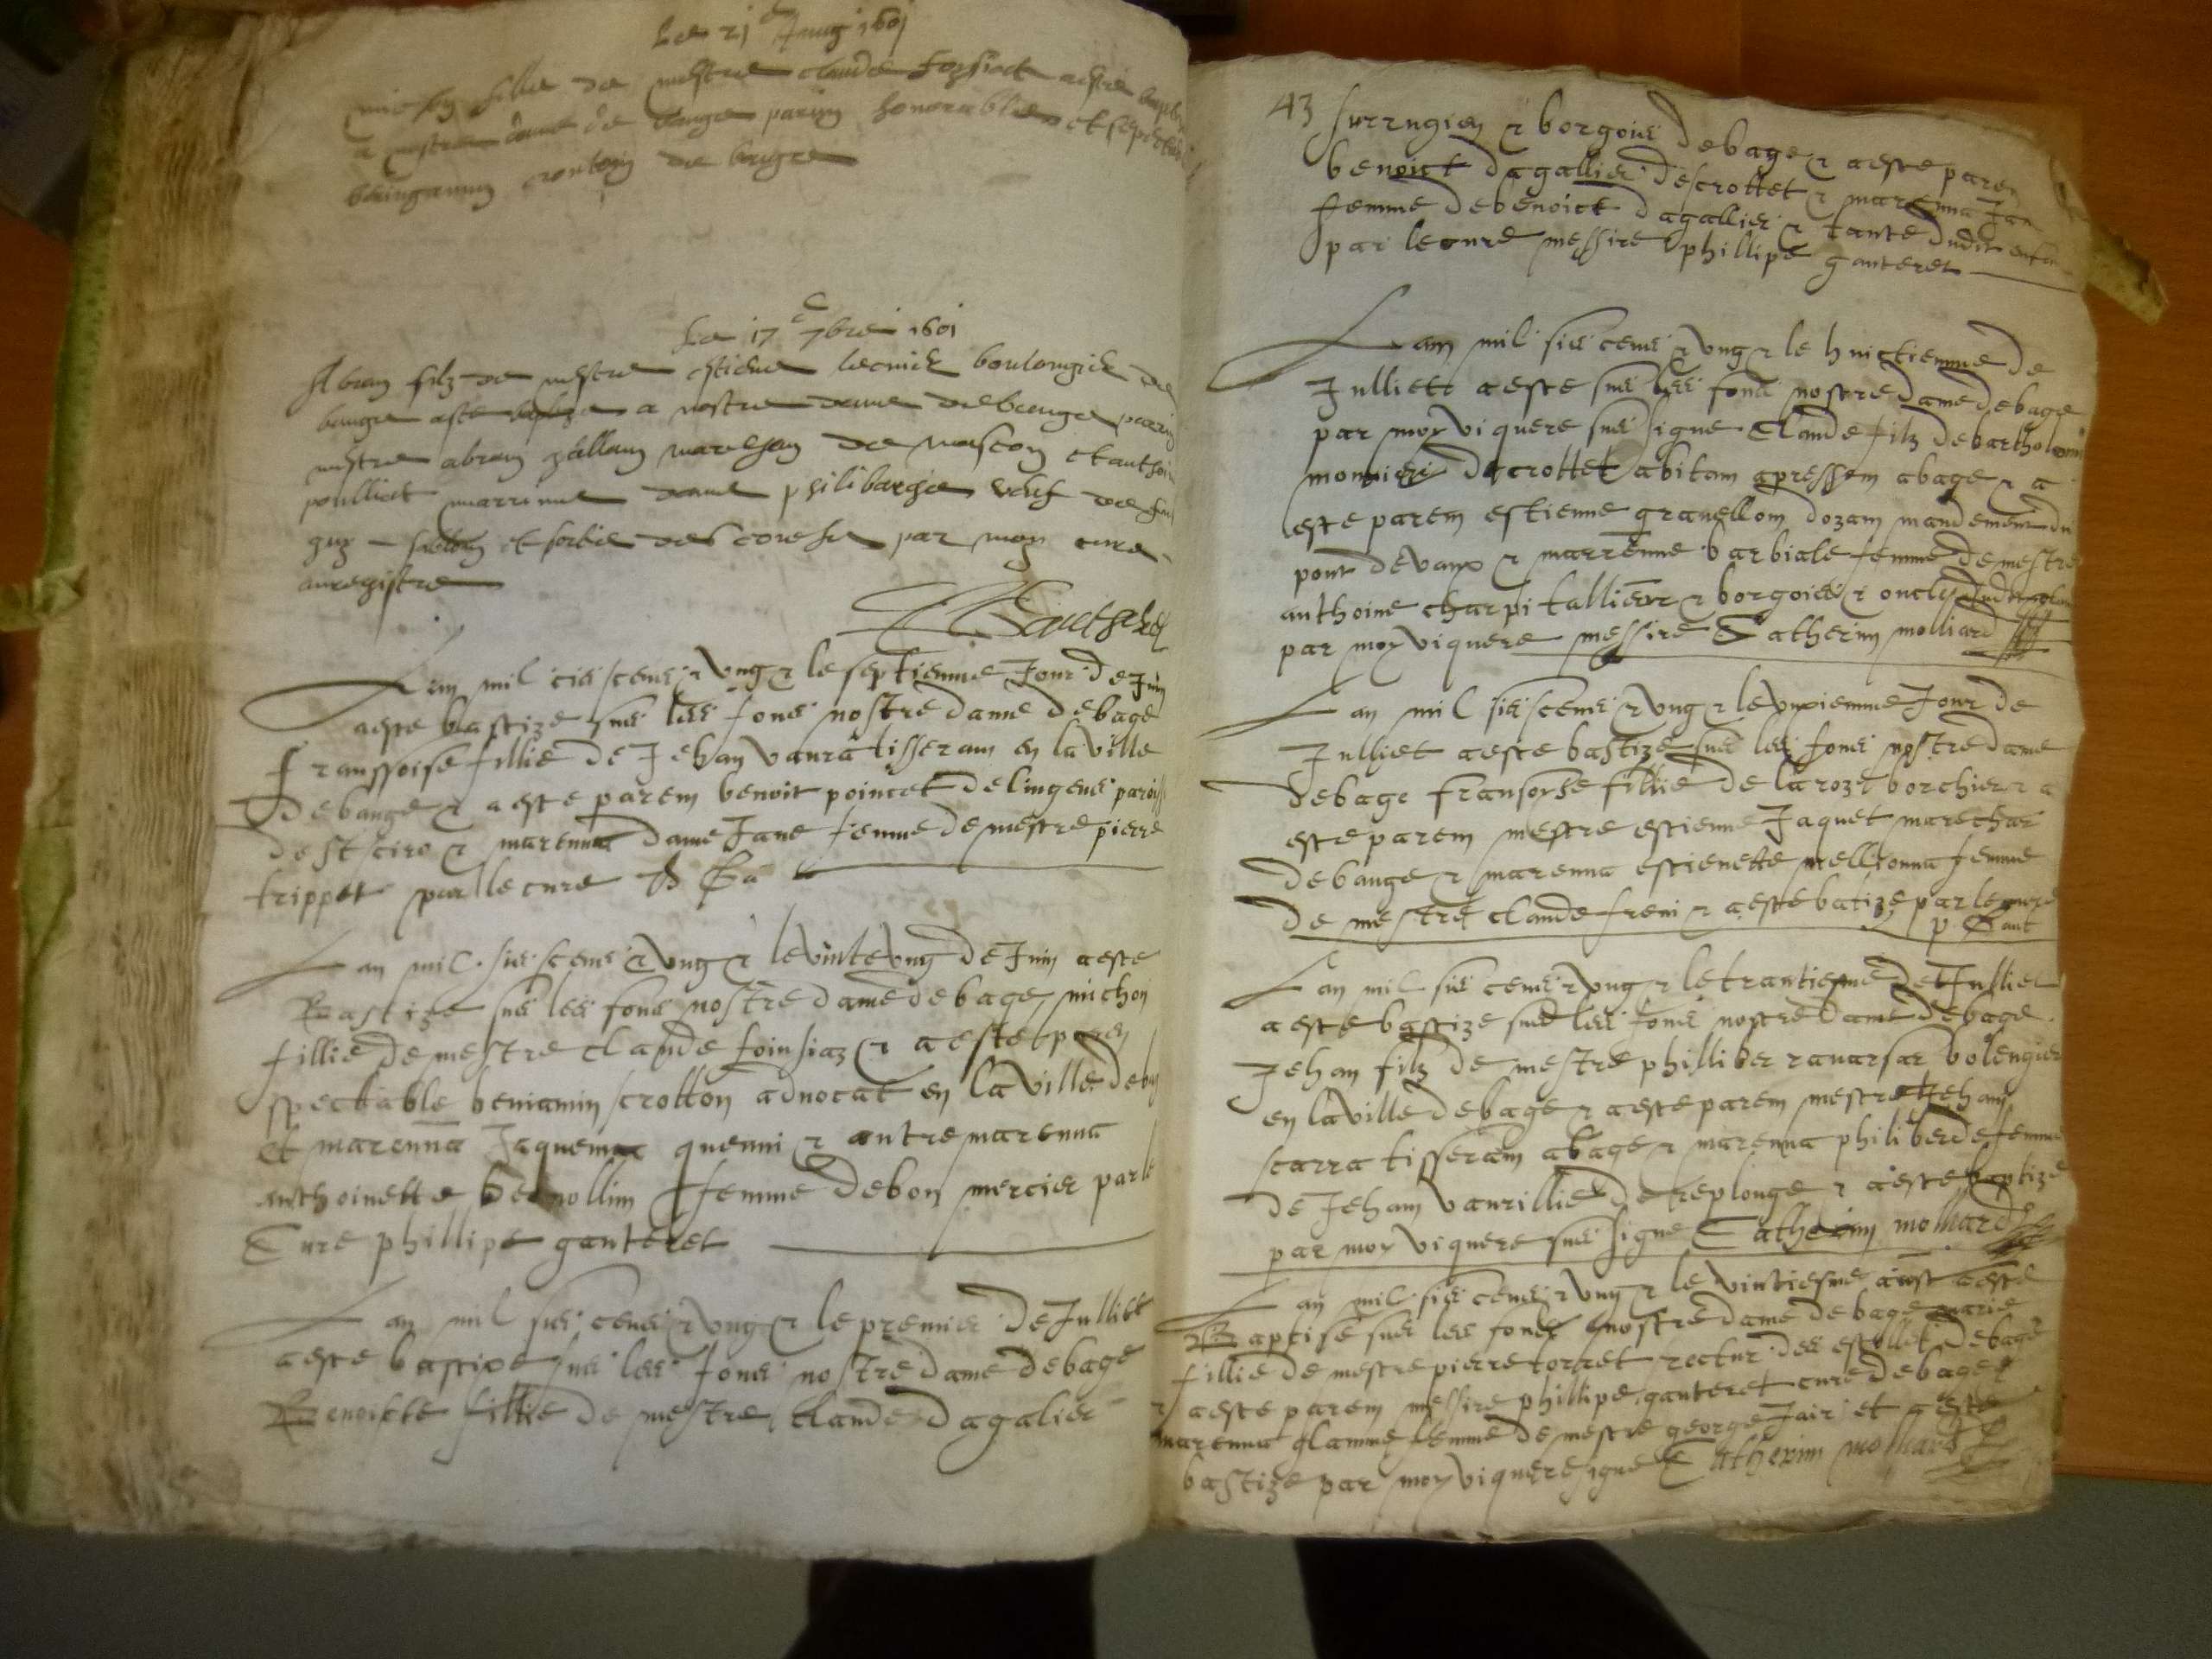 Le 21e Juing 1601
fillie de mestre claude foysiact aeste
a nostre dame de bauge parin honorable et
de bauge
Le 17e 7bre 1601
Abram filz de mestre estiene boulongier de
bauge aste a nostre dame de bauge parin
mestre abram gallam de mascon et anthoi
poulliat marrinne dame philibarge vefve de feu
par moy cure
auregistre
Lem mil cis cens & ung & le septienme Jour de Juin
aeste bastize sus les fons nostre dame debage
franssoise fillie de Jehan vaura tisseram en la ville
debauge & a este parem benoit poincet delingens parois
de st sire & marenna dame Jane femme de mestre pierre
trippet par le cure
Lan mil sis cens & ung & le vinteung de Juin aeste
Bastize sus les fons nostre dame debage michon
fillie de mestre claude foinsiaz & a este paren
spectable beniamin scrotton advocat en la ville de
et marenna Jaquema quenni & autre marenna
anthoinette femme debon mercier par le
Cure phillipe ganteret
Lan mil sis cens & ung & le premier de Julliet
aeste bastize sus les fons nostre dame debage
Benoicte fillie de mestre claude dagalier
43 surrugien & borgois debage & aeste paren
benoict dagallier descrottet & marenna Jan
femme debenoict dagallier & tante dudit
par lecure messire phillipe ganteret
Lam mil sis cens & ung & le huictiemme de
Julliett aeste sus les fons nostre dame debage
par moy viquere sus signe Claude filz debartholomi
monnier decrottet abitam apressem abage & a
este parem estienne granellom dozam mandement du
pont devaux & marrenne barbiale femme de mestre
anthoine charpi tallieur & borgois & oncle
par moy viquere messire Catherin molliard
Lan mil sis cens & ung & le unxiemme Jour de
Julliet aeste bastize sus les fons nostre dame
debage fransoyse fillie de laroze borchier & a
este parem mestre estienne Jaquet marechar
debauge & marenna estienette mellionna femme
de mestre claude freni & aeste batize par le cure
p Gant
Lan mil sis cens & ung & le trantiesme de Julliet
aeste bastize sus les fons nostre dame debage
Jehan filz de mestre philliber ravarsar bolengier
en laville debage & aeste parem mestre Jeham
scarra tisseram abage & marenna philiberde femme
de Jeham vaurillier de replonge & aeste baptize
par moy viquere sus signe Catherin molliard
Lan mil sis cens & ung & le vintiesme aust aeste
Baptise sus les fons nostre dame debage marie
fillie de mestre pierre torret rectur des escolles debage
& aeste parem messire phillipe ganteret cure debage
marenna glamme femme de mestre george Jair et aeste
bastize par moy viquere signe Catherin molliard